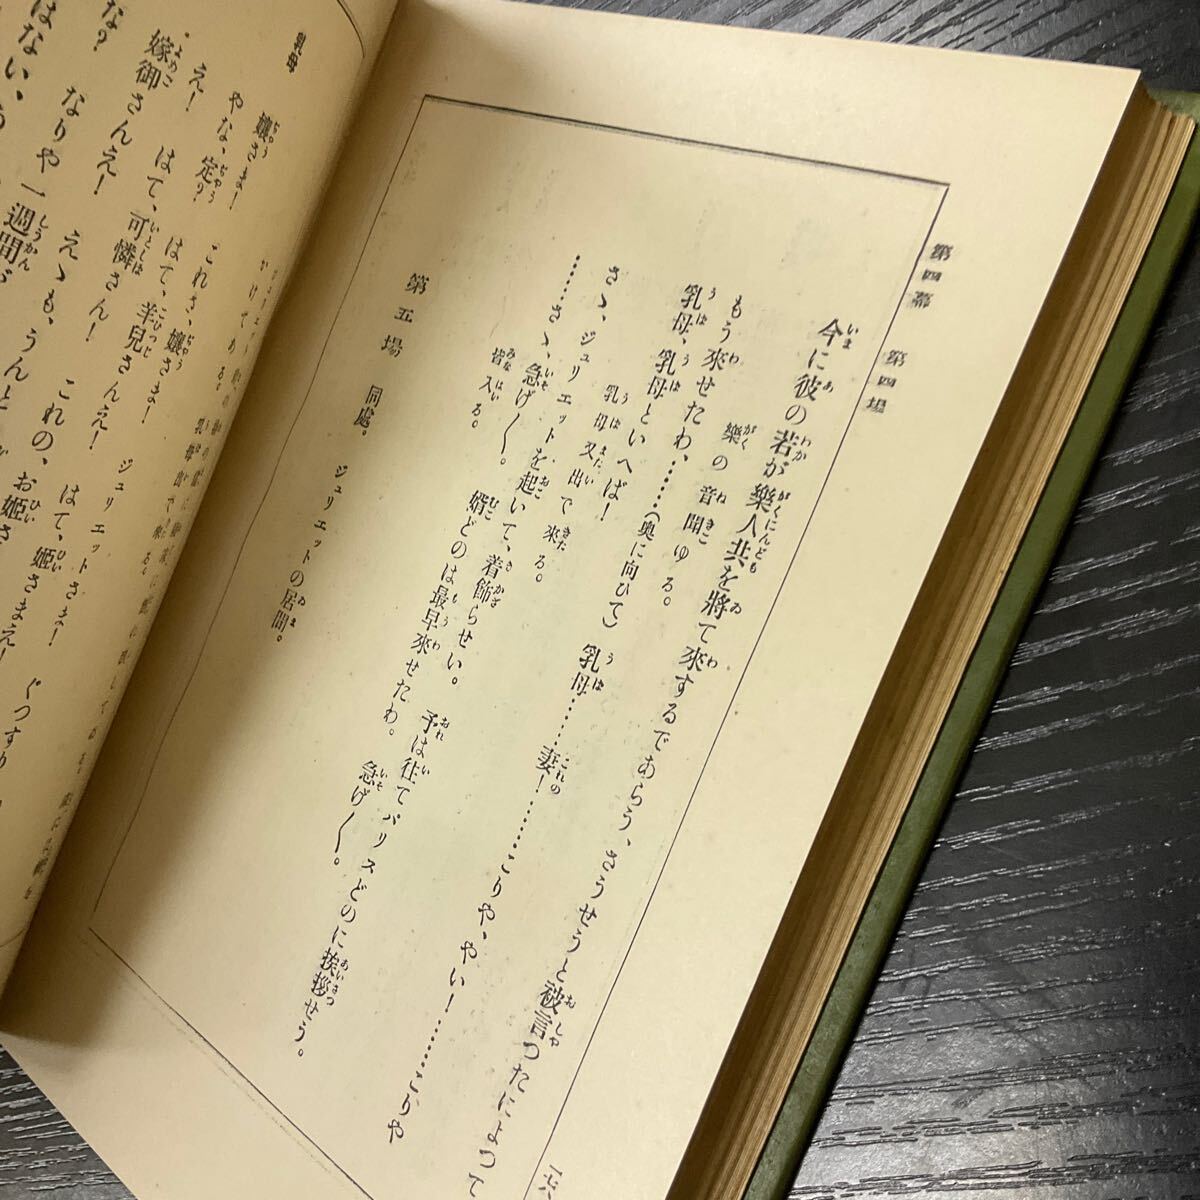 第四幕　第四場
今に彼の若が樂人共を將て來するであらう、さうせうと被言つたによつて
樂の音聞ゆる。
もう來せたわ、……(奧に向ひて)　乳母……妻！……こりや、やい！……こりや
乳母、乳母といへば！
乳母又出で來る。
さゝ、ジュリエットを起いて、着飾らせい。　予は往てパリスどのに挨拶せう。
……さゝ、急げ〳〵。　婿どのは最早來せたわ。　急げ〳〵。
皆入る。
第五場　同處。　ジュリエットの居間。
乳母　孃さま！　これさ、孃さま！　ジュリエットさま！
やな、定？　はて、羊兒さんえ！　はて、姬さまえ！
え！　はて、可憐さん！　これの、お姬さ
嫁御さんえ！　えゝも、うんと
な？　なりや一週間
はない、